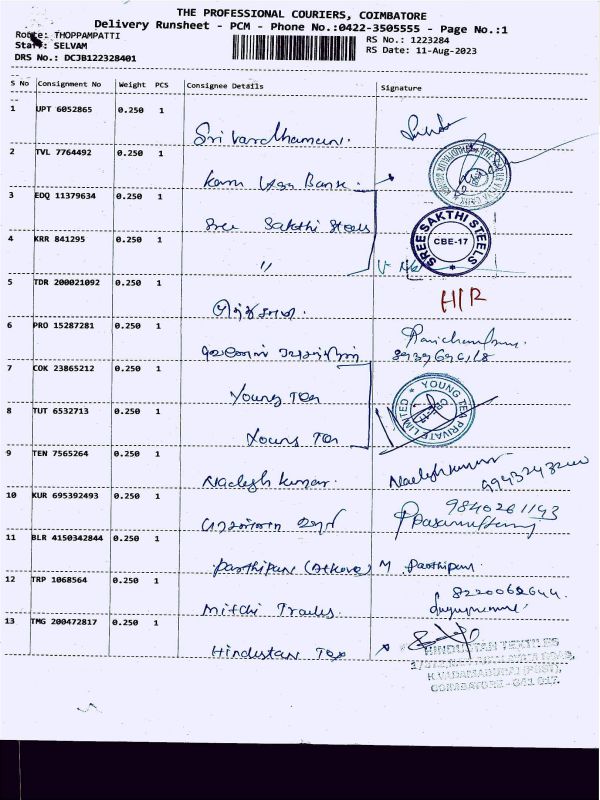 THE PROFESSIONAL COURIERS, COIMBATORE
Delivery Runsheet - PCM - Phone No.:0422-3505555 - Page No.:1
Route: THOPPAMPATTI
RS No.: 1223284
Staff: SELVAM
RS Date: 11-Aug-2023
DRS No.: DCJB122328401
S No Consignment No Weight PCS Consignee Details Signature
1 UPT 6052865 0.250 1
Sri Vardhaman.
2 TVL 7764492 0.250 1
Karur Vysya Bank.
3 EDQ 11379634 0.250 1
Sree Sakthi Steels
SREE SAKTHI STEELS
CBE-17
4 KRR 841295 0.250 1
〃
5 TDR 200021092 0.250 1
H/R
6 PRO 15287281 0.250 1
7 COK 23865212 0.250 1
Young Tea
YOUNG TEA PRIVATE LIMITED
CBE-17
8 TUT 6532713 0.250 1
Young Tea
9 TEN 7565264 0.250 1
10 KUR 695392493 0.250 1
9840261143
11 BLR 4150342844 0.250 1
Parthipan (Atkove) M Parthipan
12 TRP 1068564 0.250 1
8220062644.
Mitchi Trades.
13 TMG 200472817 0.250 1
Hindustan Tex
HINDUSTAN TEXTILES
K.VADAMADURAI (POST),
COIMBATORE - 641 017.